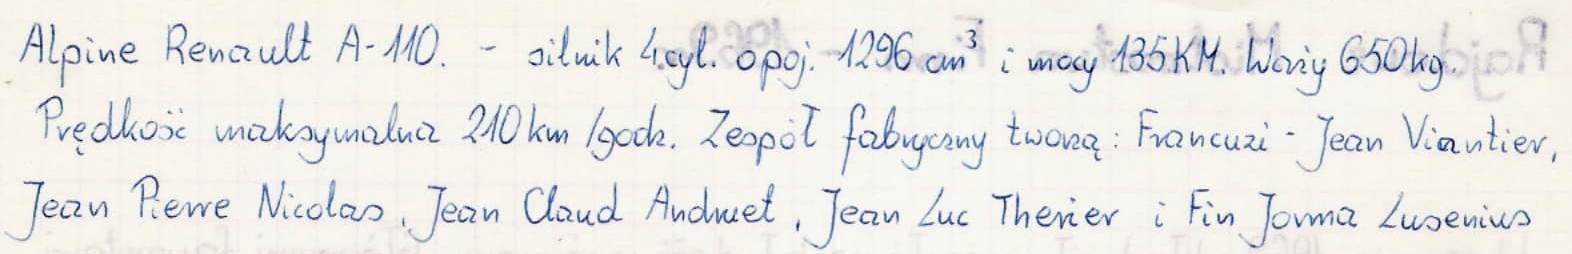 Alpine Renault A-110. - silnik 4 cyl. o poj. 1296 cm³ i mocy 135 KM. Waży 650 kg.
Prędkość maksymalna 210 km/godz. Zespół fabryczny tworzą: Francuzi - Jean Viantier,
Jean Pierre Nicolas, Jean Claud Andruet, Jean Luc Therier i Fin Jorma Lusenius